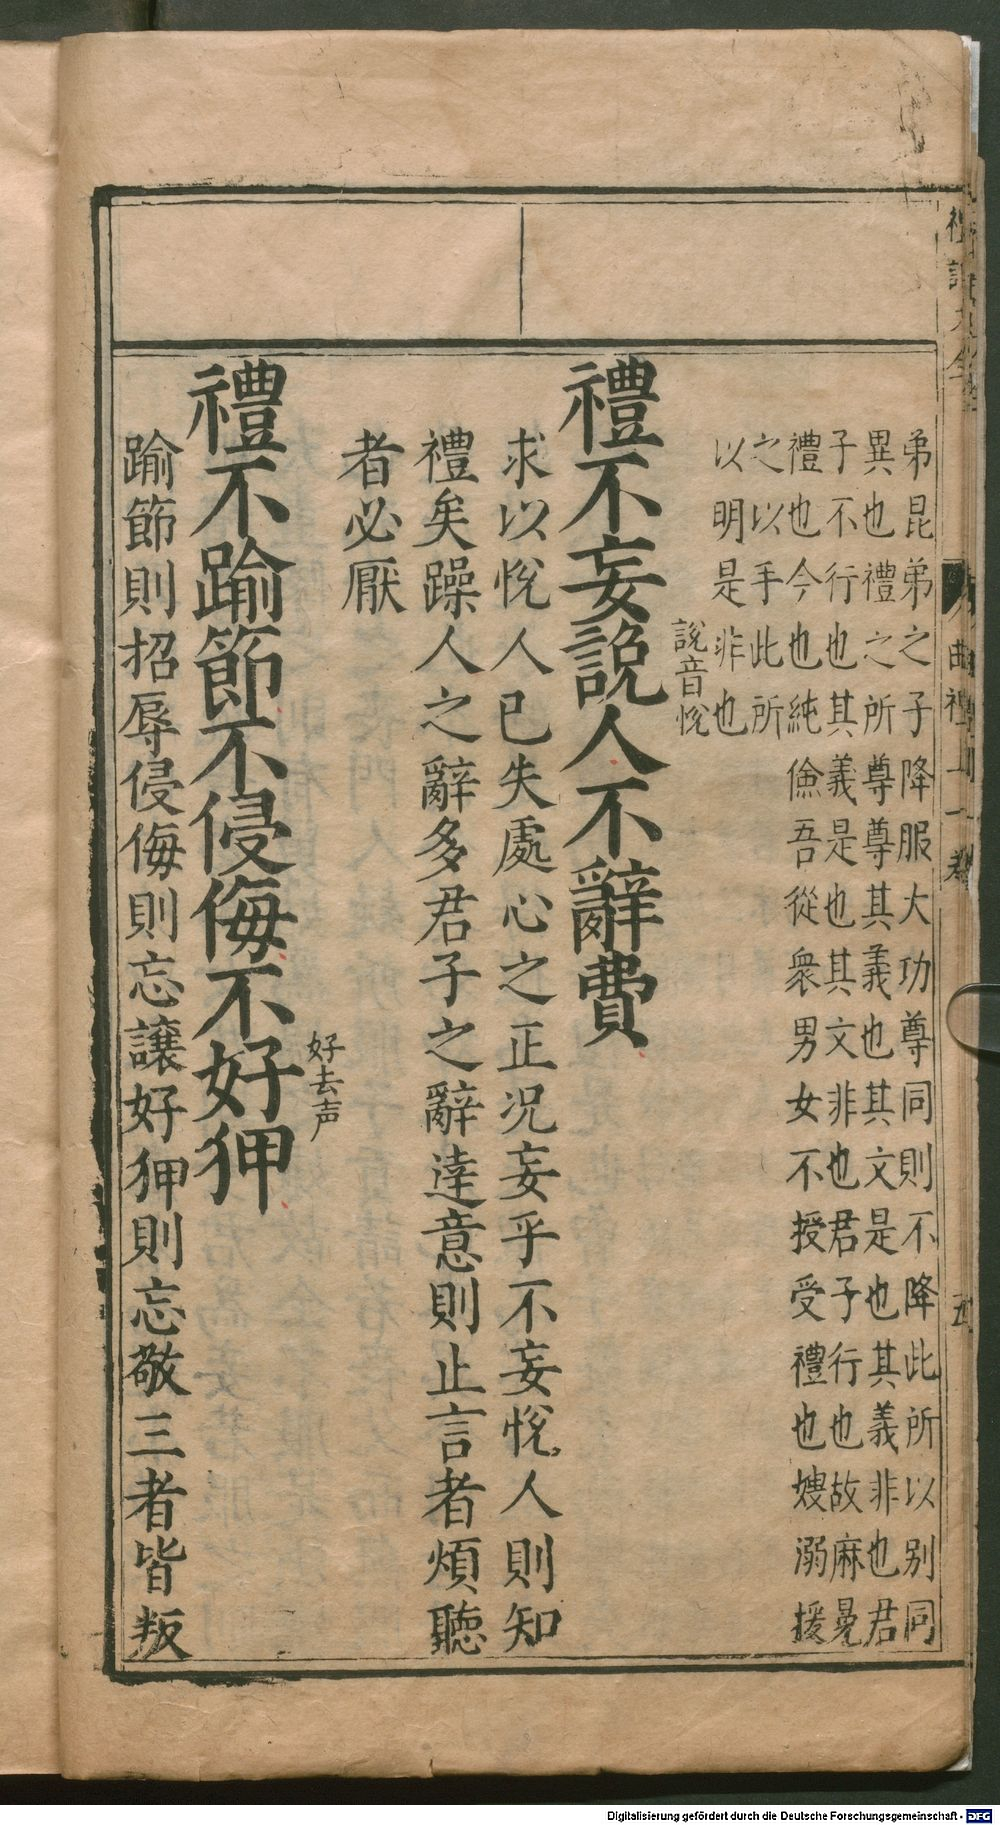 弟昆弟之子降服大功尊同則不降此所以别同
異也禮之所尊尊其義也其文是也其義非也君
子不行也其義是也其文非也君子行也故麻冕
禮也今也純儉吾從衆男女不授受禮也嫂溺援
之以手此所
以明是非也
說音悅
禮不妄說人不辭費
求以悅人已失處心之正况妄乎不妄悅人則知
禮矣躁人之辭多君子之辭達意則止言者煩聽
者必厭
好去声
禮不踰節不侵侮不好狎
踰節則招辱侵侮則忘讓好狎則忘敬三者皆叛
Digitalisierung gefördert durch die Deutsche Forschungsgemeinschaft - DFG